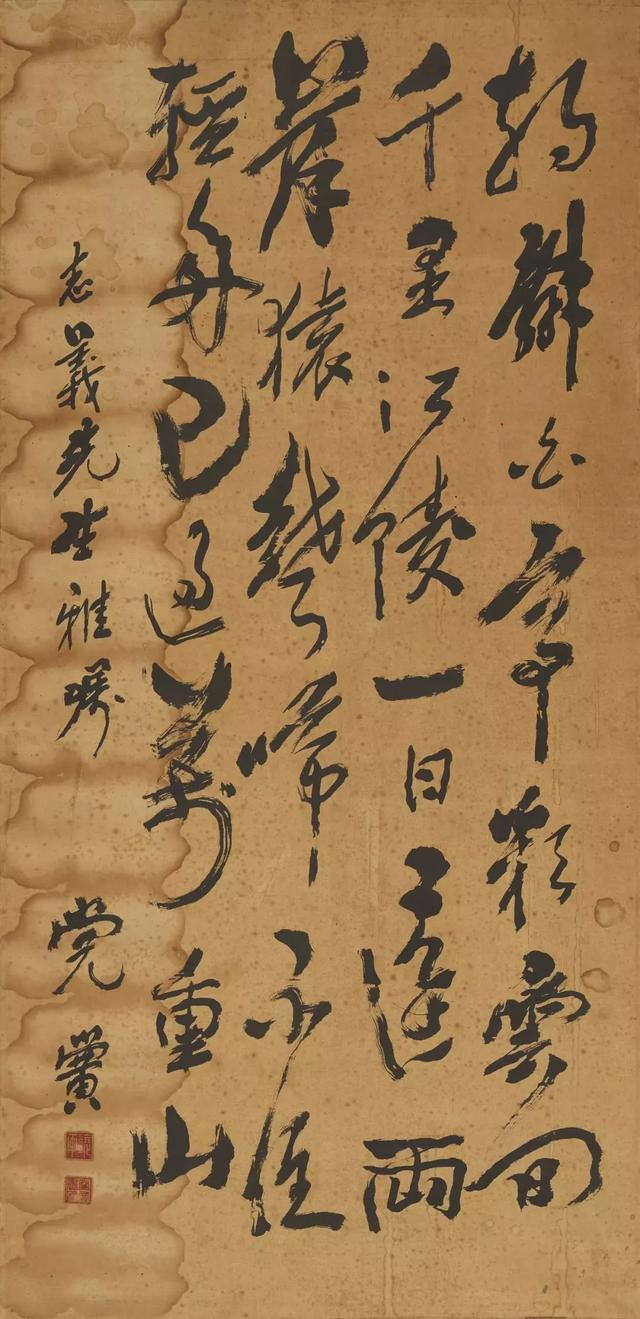 朝辭白帝彩雲間
千里江陵一日還兩
岸猿聲啼不住
輕舟已過萬重山
志義先生雅囑